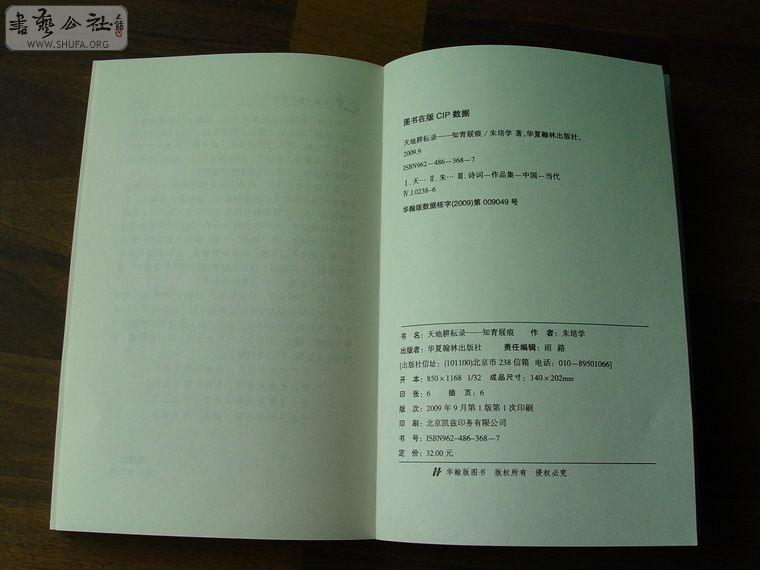 書藝公社
WWW.SHUFA.ORG
图书在版 CIP 数据
天地耕耘录——知青屐痕 / 朱培学 著,华夏翰林出版社,
2009.9
ISBN962-486-368-7
Ⅰ.天… Ⅱ.朱… Ⅲ.诗词－作品集－中国－当代
Ⅳ.I.0238-6
华翰版数据核字(2009)第 009049 号
书 名：天地耕耘录——知青屐痕 作 者：朱培学
出版者：华夏翰林出版社 责任编辑：雨 路
[出版社信址：(101100)北京市 238 信箱 电话：010-89501066]
开 本：850×1168 1/32 成品尺寸：140×202mm
印 张：6 插 页：6
版 次：2009 年 9 月第 1 版第 1 次印刷
印 刷：北京凯兹印务有限公司
书 号：ISBN962-486-368-7
定 价：32.00 元
华翰版图书 版权所有 侵权必究